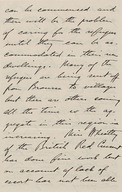 can be commenced and
then will be the problem
of caring for the refugees
until they can be ac-
commodated in their own
dwellings. Many of the
refugees are being sent off
from to village
but there are others coming
all the time so the ag-
gregate in this region is
increasing. Miss Wheatley
of the British Red Cross
has done fine work but
on account of lack of
escort has not been able